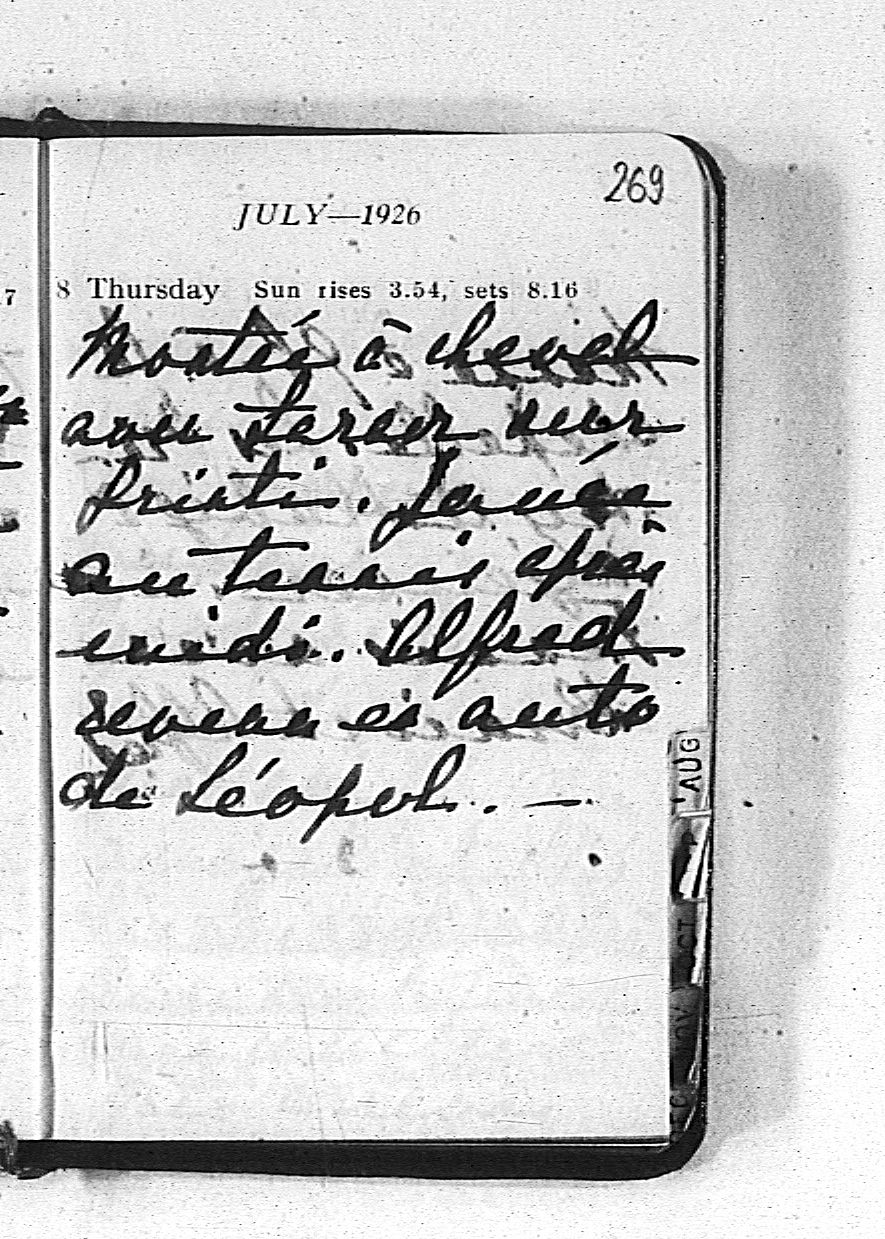 269
JULY—1926
8 Thursday Sun rises 3.54, sets 8.16
Montée à cheval
avec
au tennis après
midi. Alfred
revenu en auto
de Léopol. —
7
AUG
OCT
NOV
DEC